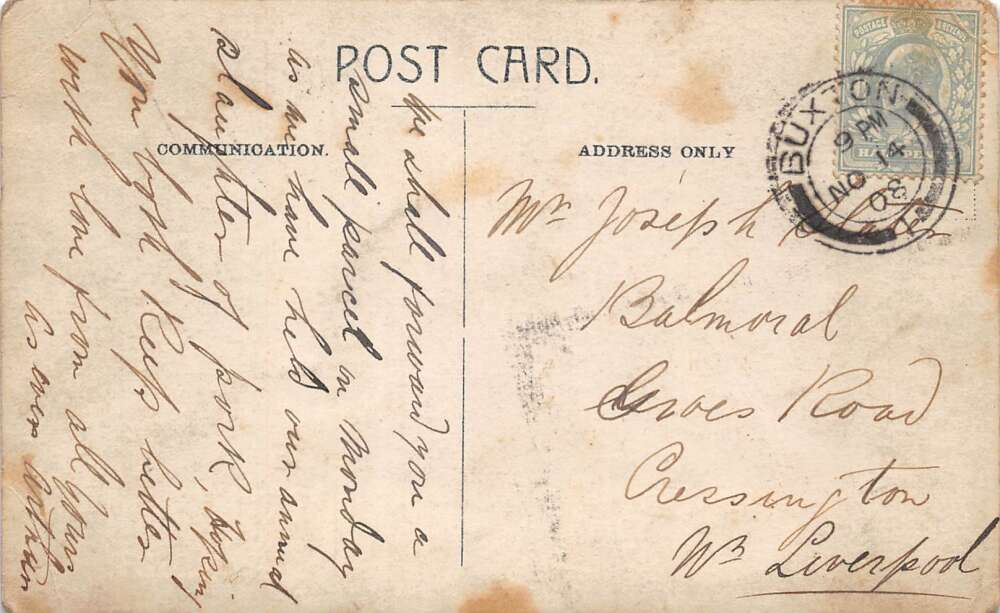 POST CARD.
COMMUNICATION.
ADDRESS ONLY
POSTAGE & REVENUE
BUXTON
9 PM
NO 14
08
We shall forward you a
small parcel on Monday
as we have held our annual
slaughter of pork, hoping
you both keep better
with love from all yours
as ever
Mr Joseph
Balmoral
Road
Cressington
Nr Liverpool